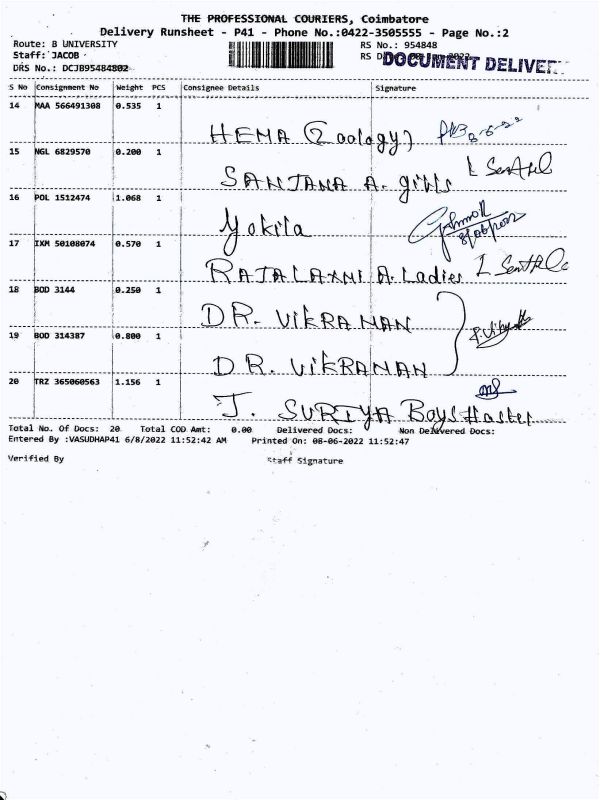 THE PROFESSIONAL COURIERS, Coimbatore
Delivery Runsheet - P41 - Phone No.:0422-3505555 - Page No.:2
Route: B UNIVERSITY RS No.: 954848
Staff: JACOB RS
DOCUMENT DELIVER
DRS No.: DCJB95484802
S No Consignment No Weight PCS Consignee Details Signature
14 MAA 566491308 0.535 1
HEMA (Zoology) 8-6-22
15 NGL 6829570 0.200 1
SANJANA A. girls
16 POL 1512474 1.068 1
Yokila 8/06/2022
17 IXM 50108074 0.570 1
RAJALAXMI A. Ladies
18 BOD 3144 0.250 1
DR. VIKRAMAN
19 BOD 314387 0.800 1
DR. VIKRAMAN
20 TRZ 365060563 1.156 1
J. SURIYA Boys Hostel
Total No. Of Docs: 20 Total COD Amt: 0.00 Delivered Docs: Non Delivered Docs:
Entered By :VASUDHAP41 6/8/2022 11:52:42 AM Printed On: 08-06-2022 11:52:47
Verified By Staff Signature